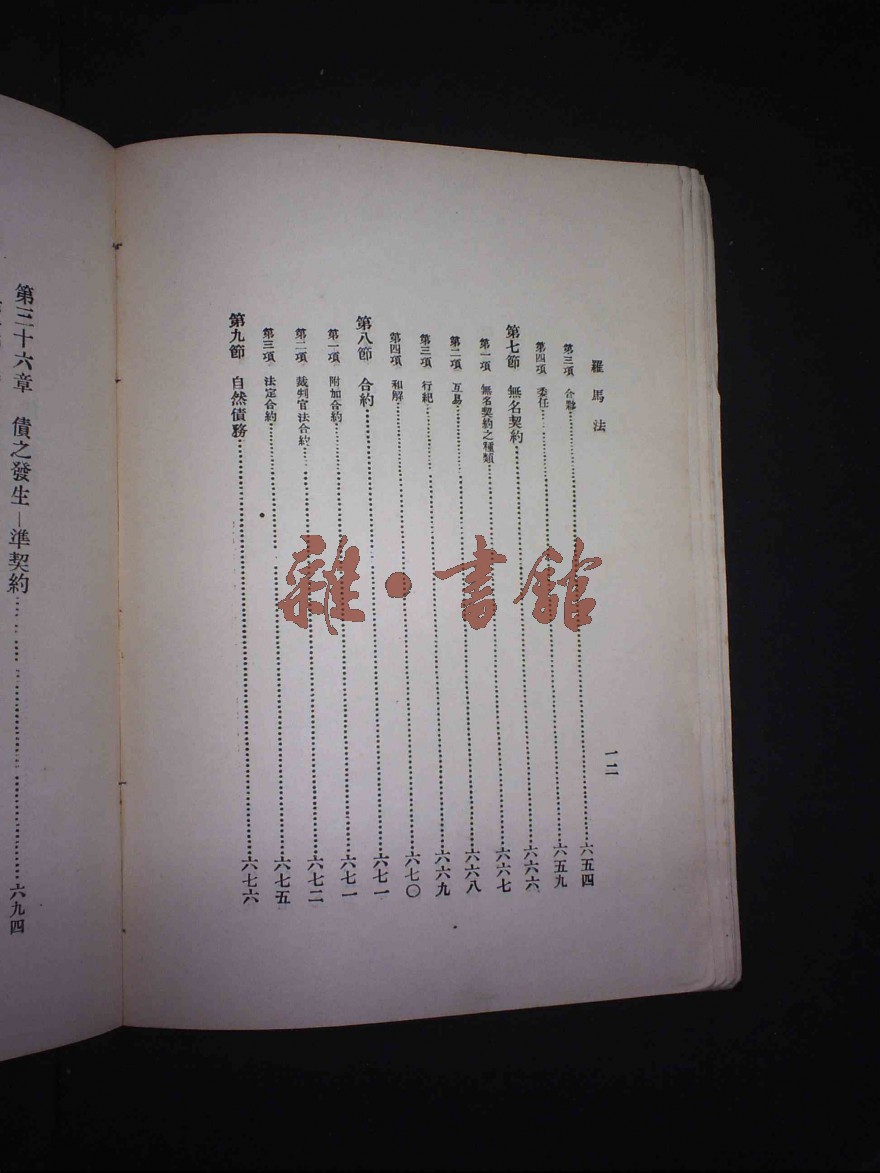 羅馬法
一二
第三項 合夥……六五四
第四項 委任……六五九
第七節 無名契約……六六六
第一項 無名契約之種類……六六七
第二項 互易……六六八
第三項 行紀……六六九
第四項 和解……六七〇
第八節 合約……六七一
第一項 附加合約……六七一
第二項 裁判官法合約……六七二
第三項 法定合約……六七五
第九節 自然債務……六七六
第三十六章 債之發生—準契約……六九四
雜·書館